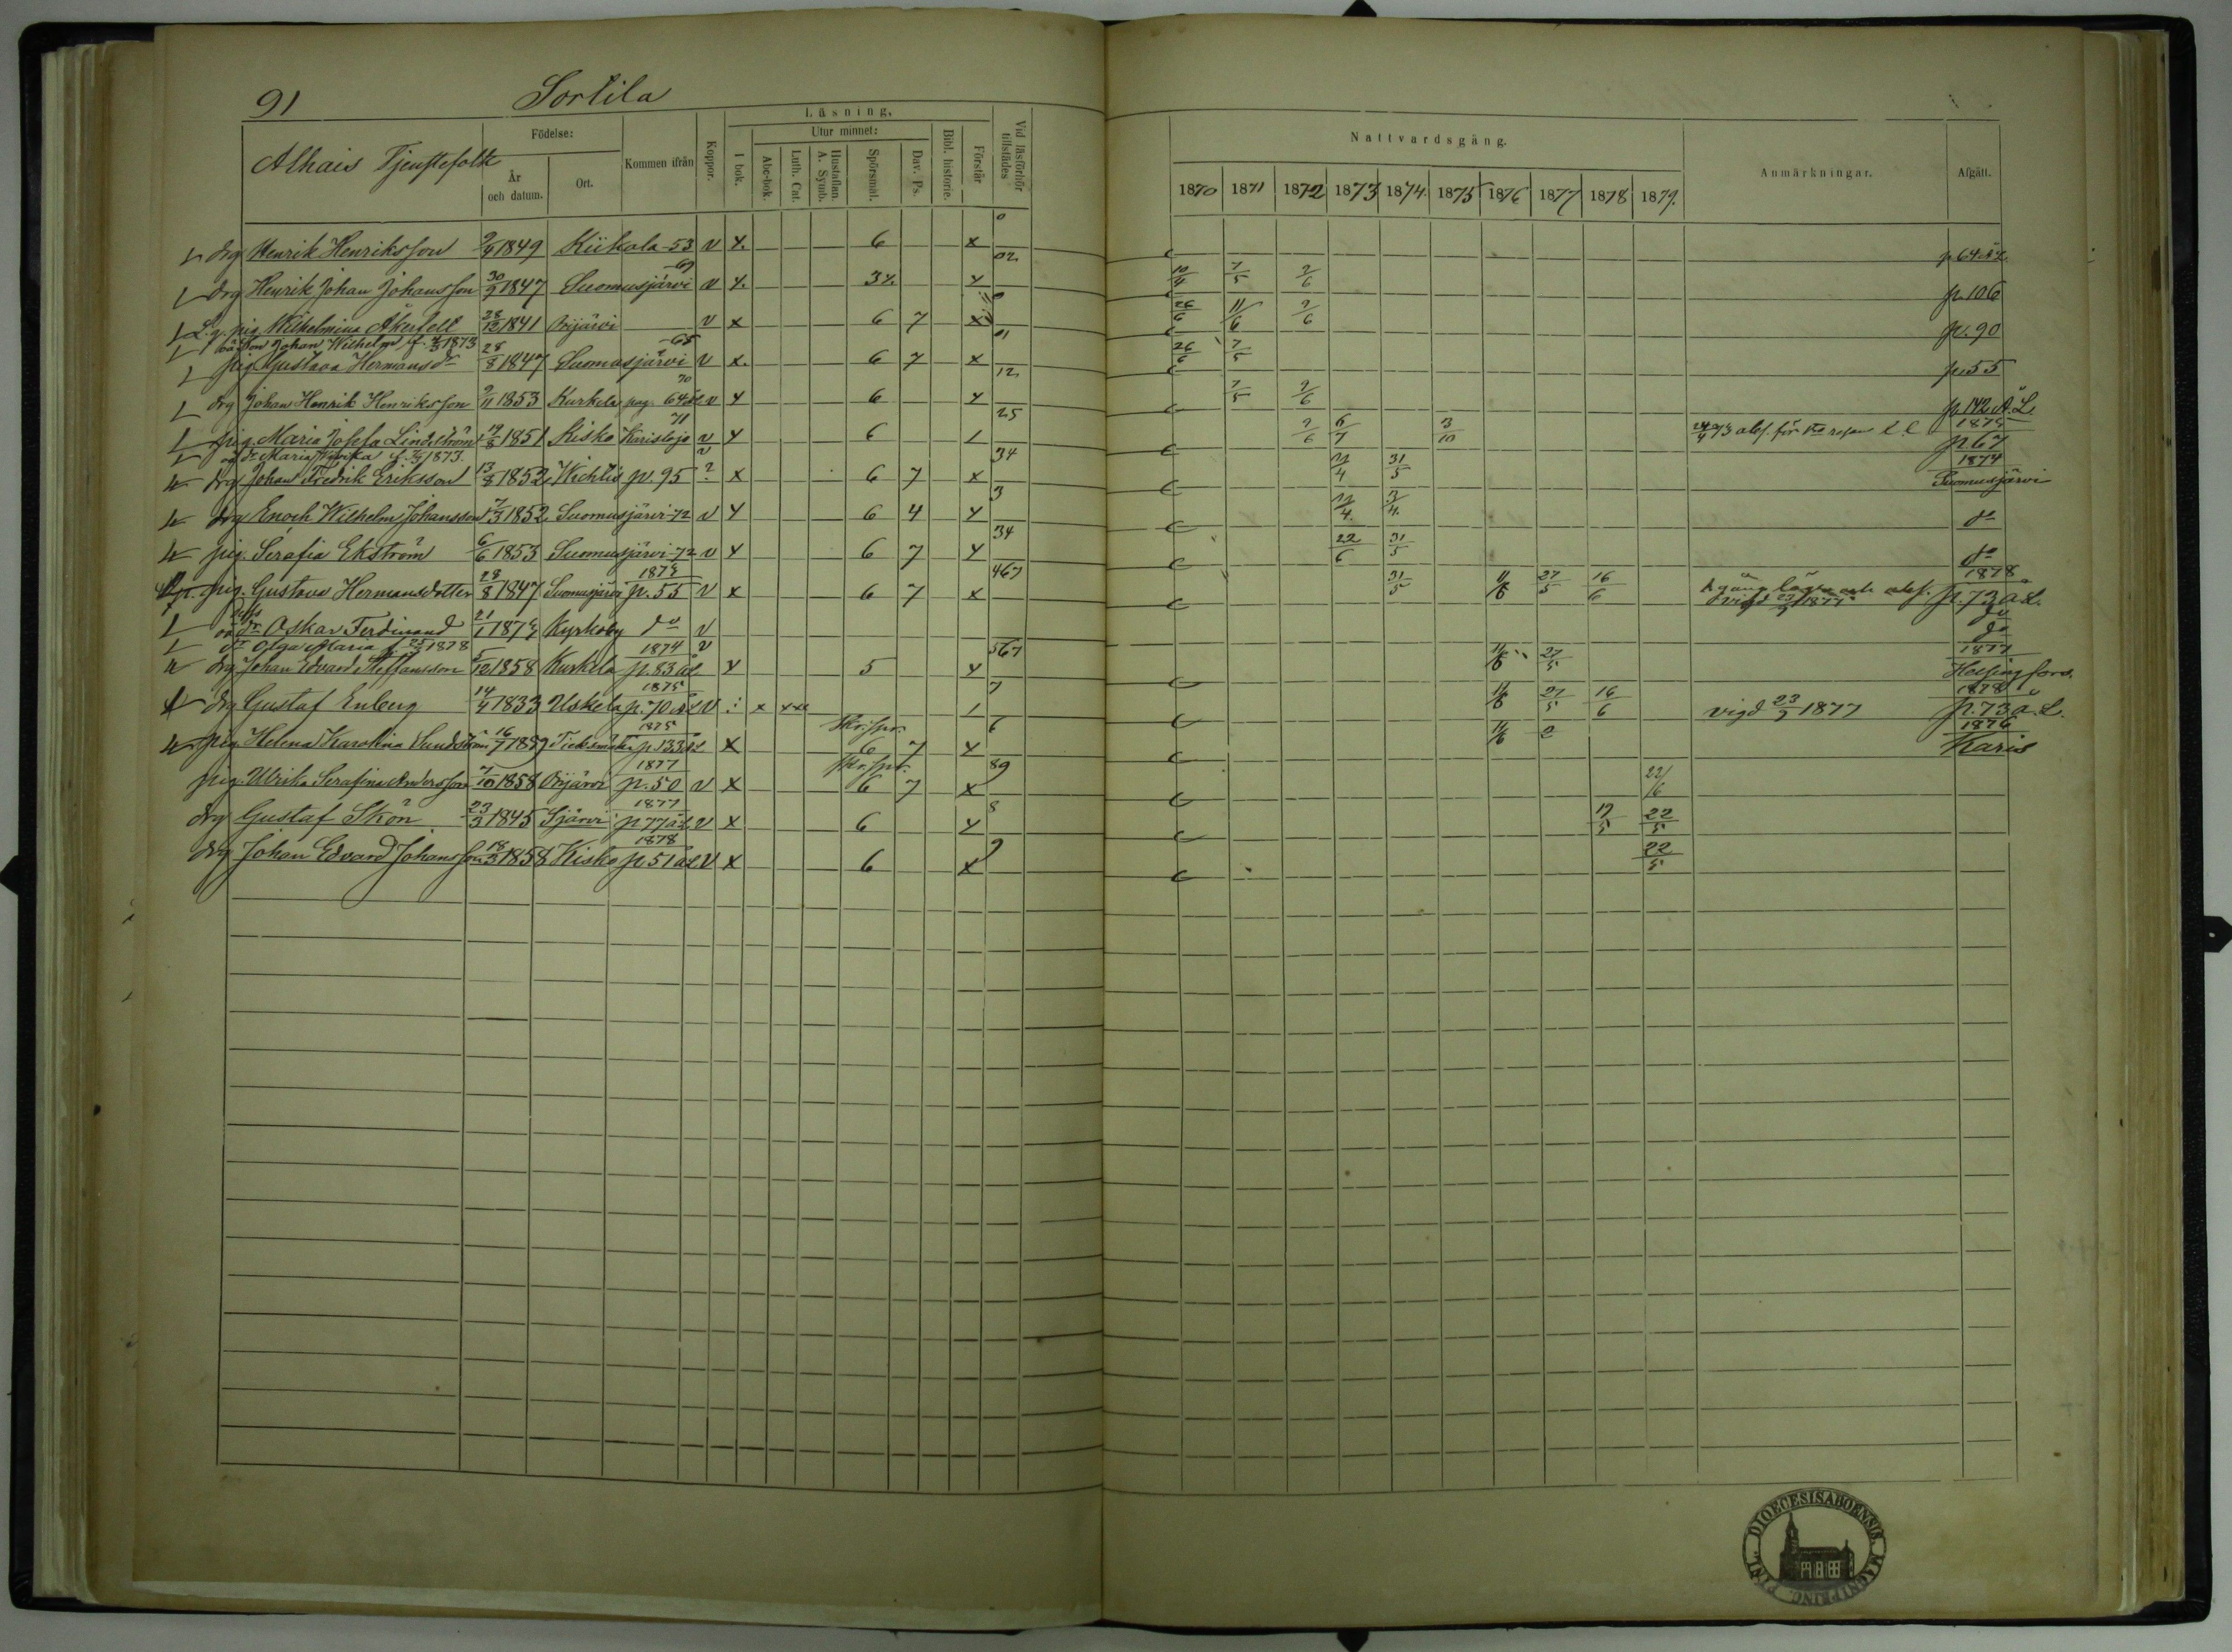 91 Sortila
Alhais Tjenstefolk
Födelse:
År och datum.
Ort.
Kommen ifrån
Koppor.
Läsning,
I bok.
Utur minnet:
Abc-bok.
Luth. Cat.
Hustaflan. A. Symb.
Spörsmål.
Dav. Ps.
Bibl. historie.
Förstår
Vid läsförhör tillstädes
Nattvardsgång.
1870 1871 1872 1873 1874 1875 1876 1877 1878 1879
Anmärkningar.
Afgått.
drg Henrik Henriksson 1849 Kiikala -53 v x 6 x 0 p. 64 ÄL
drg Henrik Johan Johansson 30/9 1847 Suomusjärvi -69 v x 3x x 02 10/4 7/5 2/6 p. 106
pig. Wilhelmina Åkerfelt 28/12 1841 Orijärvi v x 6 7 x 26/6 11/6 2/6 p. 90
oä Son Johan Wilhelm f. 1873
pig. Gustava Hermansdr 28/8 1847 Suomusjärvi -68 v x 6 7 x 01 26/6 7/5 p. 55
drg Johan Henrik Henriksson 2/11 1853 Kurkela pag. 64 70 v x 6 x 12 7/5 2/6 p. 142 Ä.L.
pig. Maria Josefa Lindström 19/8 1851 Kisko Karislojo 71 v x 6 / 25 2/6 6/7 3/10 1875 p 67
oä dr Maria f. 1873. v
drg Johan Fredrik Eriksson 13/8 1852 Wichtis p. 95 ? x 6 7 x 34 31/5 1874 Suomusjärvi
drg Enoch Wilhelm Johansson 1852 Suomusjärvi -72 v x 6 4 x 3 do
pig. Serafia Ekström 6/6 1853 Suomusjärvi -72 v x 6 7 x 34 22/6 31/5 do
pig. Gustava Hermansdotter 28/8 1847 Suomusjärvi 1873 p. 55 v x 6 7 x 467 31/5 11/6 27/5 16/6 vigd 23/9 1877 1878 p. 73 ÄL.
Oskar Ferdinand 21/1 1874 Kyrkoby do v do
dr Olga Maria f. 25/2 1878 v do
drg Johan Edvard Steffansson 5/12 1858 Kurkela 1874 p. 83 ÄL x 5 x 567 11/6 27/5 1877 Helsingfors.
drg Gustaf Enberg 14/4 1833 Uskela 1875 p. 70 ÄL v x / 7 11/6 27/5 16/6 vigd 23/9 1877 1878 p. 73 ä.L.
pig. Helena Karolina Sundström 16/7 1859 1875 p. 133 ÄL x Skr.spr. 6 7 x 6 11/6 1876 Karis
pig. Ulrika Serafina Andersson 7/10 1858 Orijärvi 1877 p. 50 v x Skr.spr. 6 7 x 89 22/6
drg Gustaf Skön 23/3 1845 Sjärvi 1877 p 77 ä.L. v x 6 x 8 19/5 22/5
drg Johan Edvard Johansson 18/3 1858 Kisko 1878 p. 51 ÄL v x 6 x 9 22/5